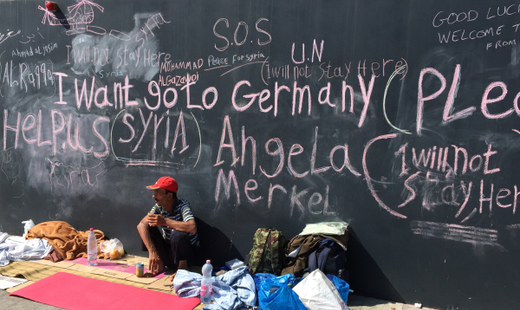 S.O.S
GOOD LUCK
WELCOME T
FROM
U.N
Ahmad al jasim
I will not Stay Here
Syria
MUHAMMAD
ALGAZAWI
Peace for Syria
(I will not Stay Here
ALRAQQA
I want go to Germany (PLea
HELP.US (SYRIA) AngeLa
Merkel
(I will not
Stay Here